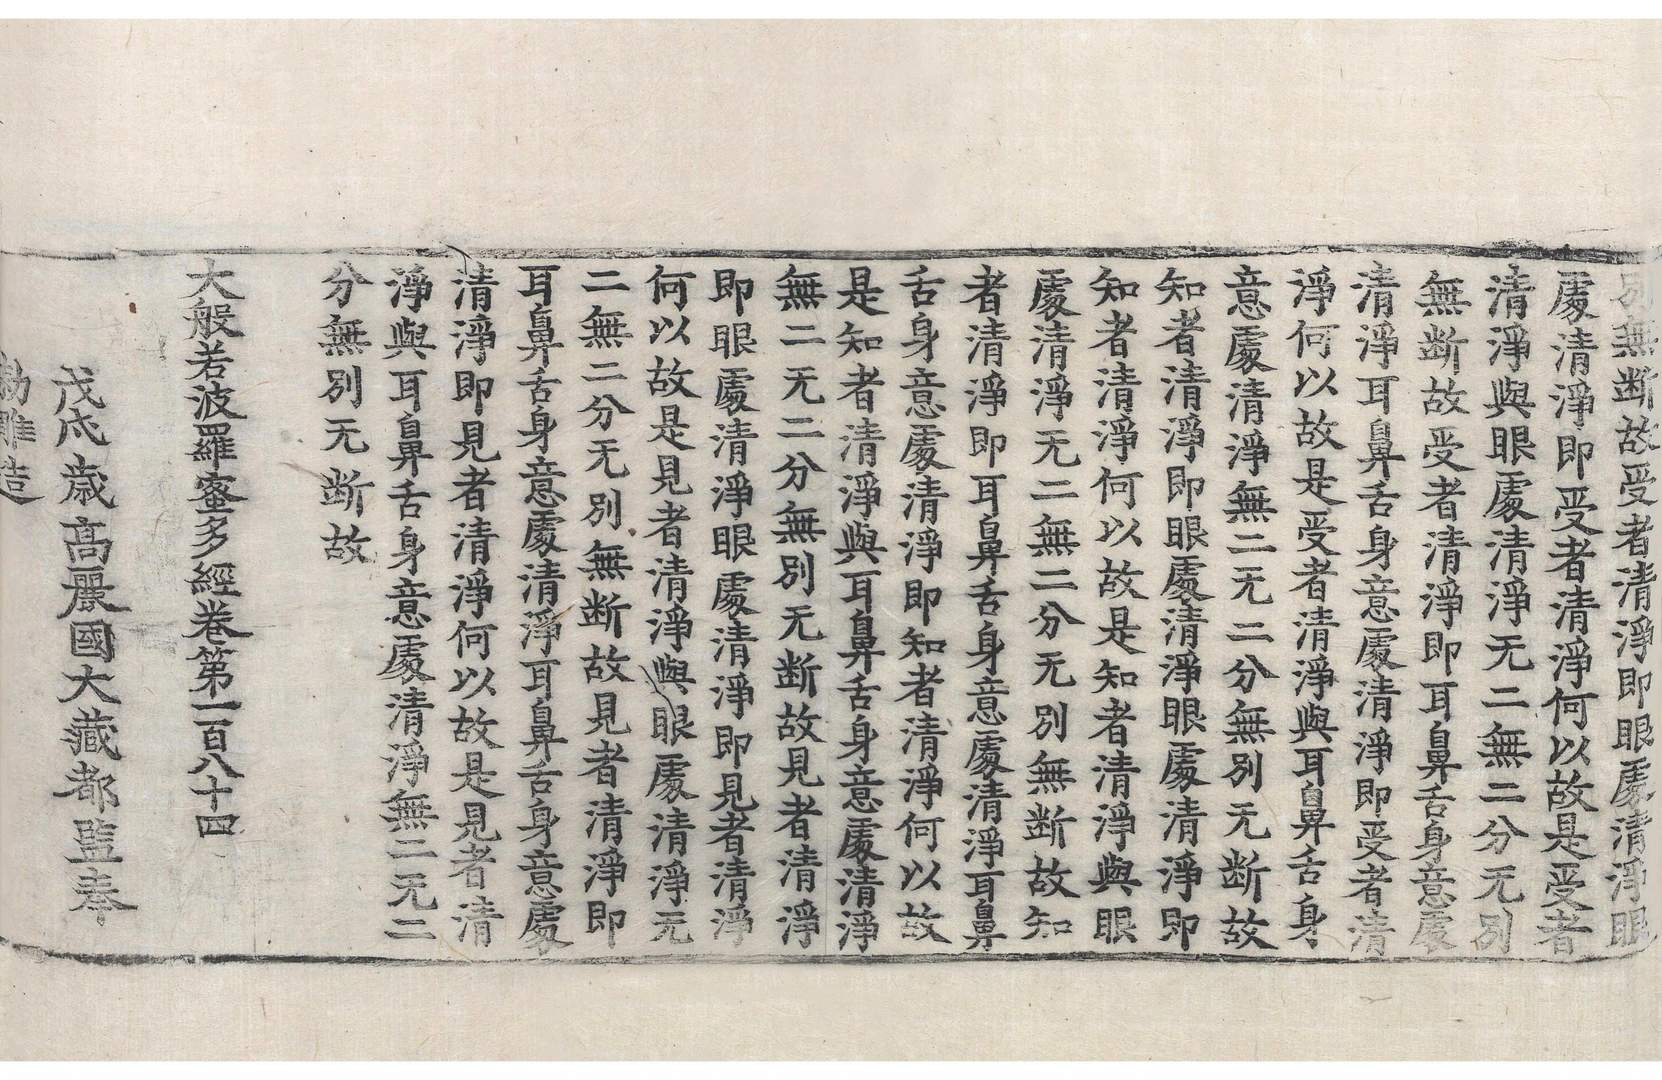 別無断故受者清淨即眼處清淨眼
處清淨即受者清淨何以故是受者
清淨與眼處清淨无二無二分无別
無断故受者清淨即耳鼻舌身意處
清淨耳鼻舌身意處清淨即受者清
淨何以故是受者清淨與耳鼻舌身
意處清淨無二无二分無別无断故
知者清淨即眼處清淨眼處清淨即
知者清淨何以故是知者清淨與眼
處清淨无二無二分无別無断故知
者清淨即耳鼻舌身意處清淨耳鼻
舌身意處清淨即知者清淨何以故
是知者清淨與耳鼻舌身意處清淨
無二无二分無別无断故見者清淨
即眼處清淨眼處清淨即見者清淨
何以故是見者清淨與眼處清淨无
二無二分无別無断故見者清淨即
耳鼻舌身意處清淨耳鼻舌身意處
清淨即見者清淨何以故是見者清
淨與耳鼻舌身意處清淨無二无二
分無別无断故
大般若波羅蜜多經卷第一百八十四
戊戌歲高麗國大藏都監奉
勑雕造